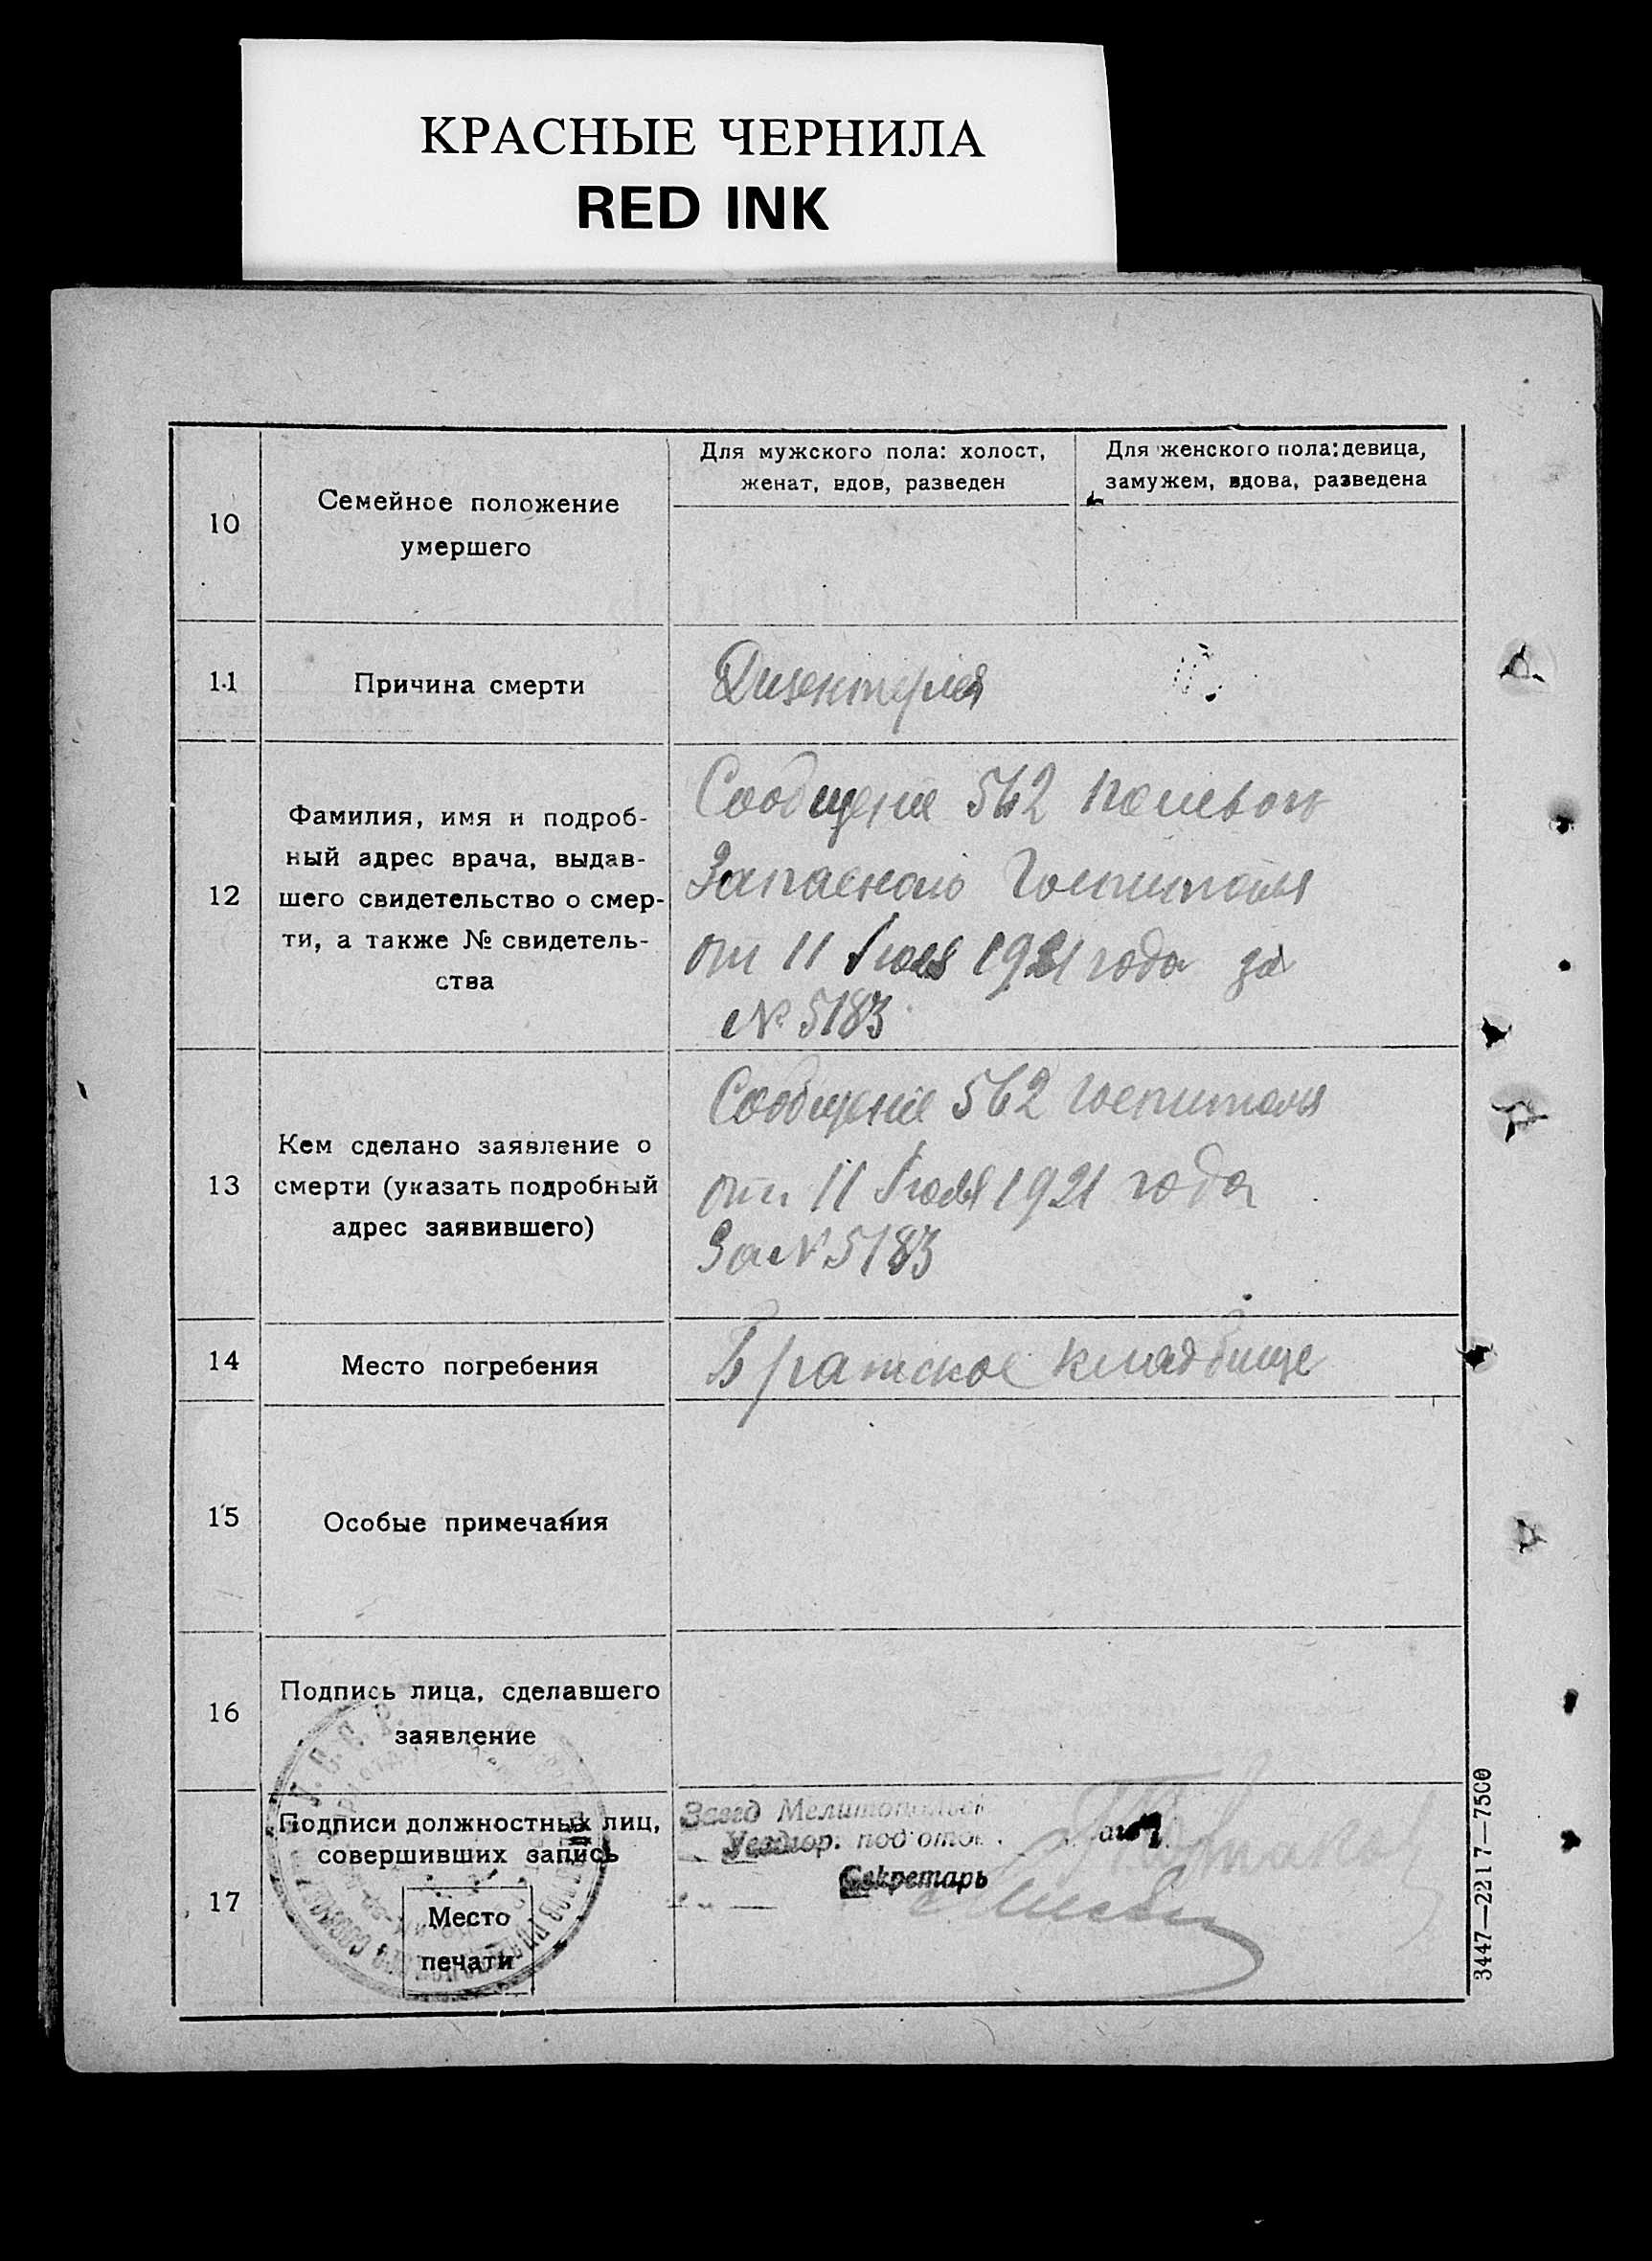 КРАСНЫЕ ЧЕРНИЛА
RED INK
10
Семейное положение
умершего
Для мужского пола: холост,
женат, вдов, разведен
Для женского пола: девица,
замужем, вдова, разведена
11
Причина смерти
Дизентерия
12
Фамилия, имя и подроб-
ный адрес врача, выдав-
шего свидетельство о смер-
ти, а также № свидетель-
ства
Сообщение 562
Запасного Госпиталя
от 11 Июля 1921 года за
№ 5183
13
Кем сделано заявление о
смерти (указать подробный
адрес заявившего)
Сообщение 562 госпиталя
от 11 Июля 1921 года
За № 5183
14
Место погребения
Братское кладбище
15
Особые примечания
16
Подпись лица, сделавшего
заявление
17
Подписи должностных лиц,
совершивших запись
Место
печати
Завед Мелитопольск
под'отд
Секретарь
3447—2217—7500